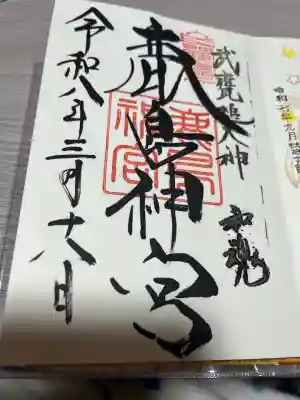 令和七年九月
武甕槌大神 和魂
鹿島神宮
鹿島
神宮
令和八年三月十八日